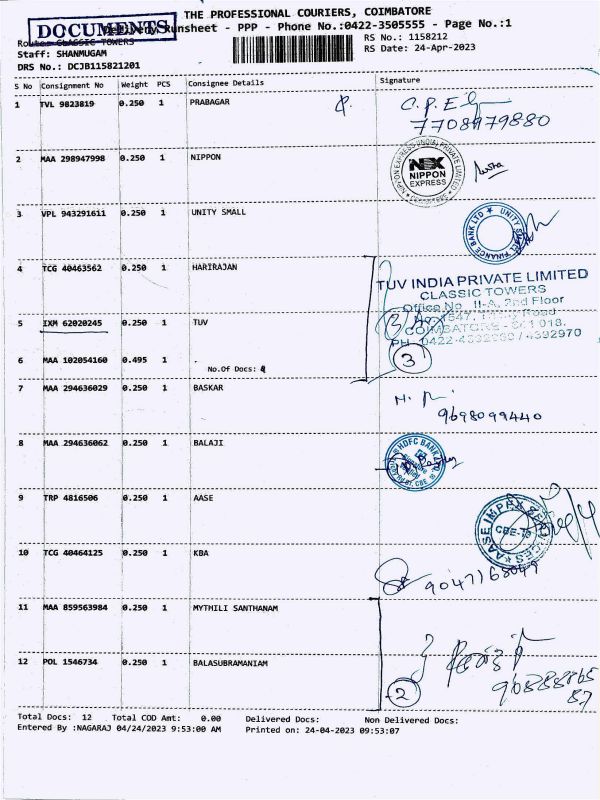 THE PROFESSIONAL COURIERS, COIMBATORE
DOCUMENTS
Delivery Runsheet - PPP - Phone No.:0422-3505555 - Page No.:1
Route: CLASSIC TOWERS
RS No.: 1158212
Staff: SHANMUGAM
RS Date: 24-Apr-2023
DRS No.: DCJB115821201
S No Consignment No Weight PCS Consignee Details Signature
1 TVL 9823819 0.250 1 PRABAGAR
7708979880
2 MAA 298947998 0.250 1 NIPPON
NIPPON EXPRESS (INDIA) PRIVATE LIMITED
NEX
NIPPON
EXPRESS
3 VPL 943291611 0.250 1 UNITY SMALL
UNITY SMALL FINANCE BANK LTD
4 TCG 40463562 0.250 1 HARIRAJAN
TUV INDIA PRIVATE LIMITED
CLASSIC TOWERS
Office No. II-A, 2nd Floor
5 IXM 62020245 0.250 1 TUV
No. 1547, Road
COIMBATORE - 641 018.
PH: 0422- / 4392970
3
6 MAA 102054160 0.495 1 .
No.Of Docs: 4
7 MAA 294636029 0.250 1 BASKAR
9698099440
8 MAA 294636062 0.250 1 BALAJI
HDFC BANK LTD
9 TRP 4816506 0.250 1 AASE
AASE IMPEX SERVICES
CBE-18
10 TCG 40464125 0.250 1 KBA
9047168049
11 MAA 859563984 0.250 1 MYTHILI SANTHANAM
12 POL 1546734 0.250 1 BALASUBRAMANIAM
2
Total Docs: 12 Total COD Amt: 0.00 Delivered Docs: Non Delivered Docs:
Entered By :NAGARAJ 04/24/2023 9:53:00 AM Printed on: 24-04-2023 09:53:07